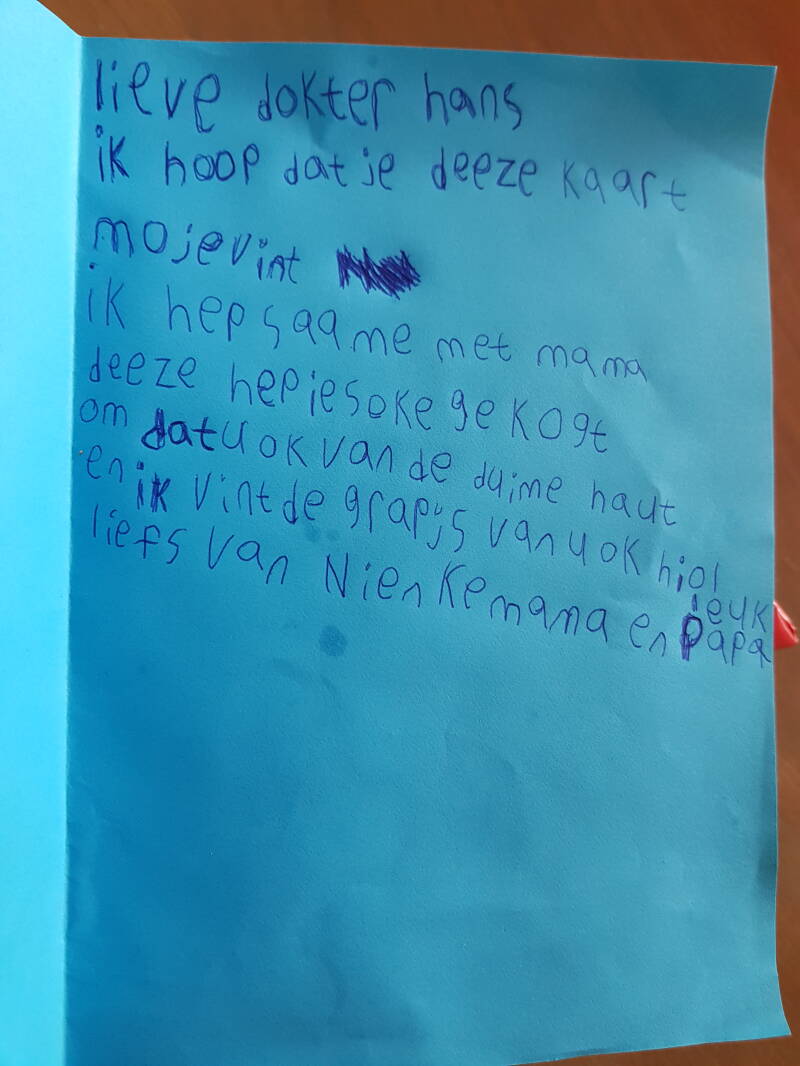 lieve dokter hans
ik hoop dat je deeze kaart
moje vint
ik hep saame met mama
deeze hepie soke ge kogt
om dat u ok van de duime haut
en ik vint de grapijs van u ok hiol
leuk
liefs van Nienke mama en papa